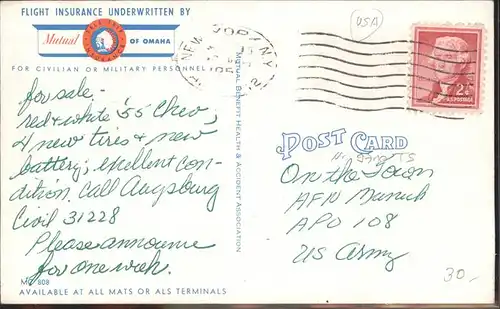 FLIGHT INSURANCE UNDERWRITTEN BY
Mutual OF OMAHA
FOR CIVILIAN OR MILITARY PERSONNEL
for sale -
red & white '55 Chev,
4 new tires & new
battery; excellent con-
dition. Call Augsburg
Civil 31228
Please announce
for one week.
MO 808
AVAILABLE AT ALL MATS OR ALS TERMINALS
MUTUAL BENEFIT HEALTH & ACCIDENT ASSOCIATION
NEW YORK, N.Y.
USA
2¢
U.S. POSTAGE
POST CARD
On the Town
AFN Munich
APO 108
US Army
30.-